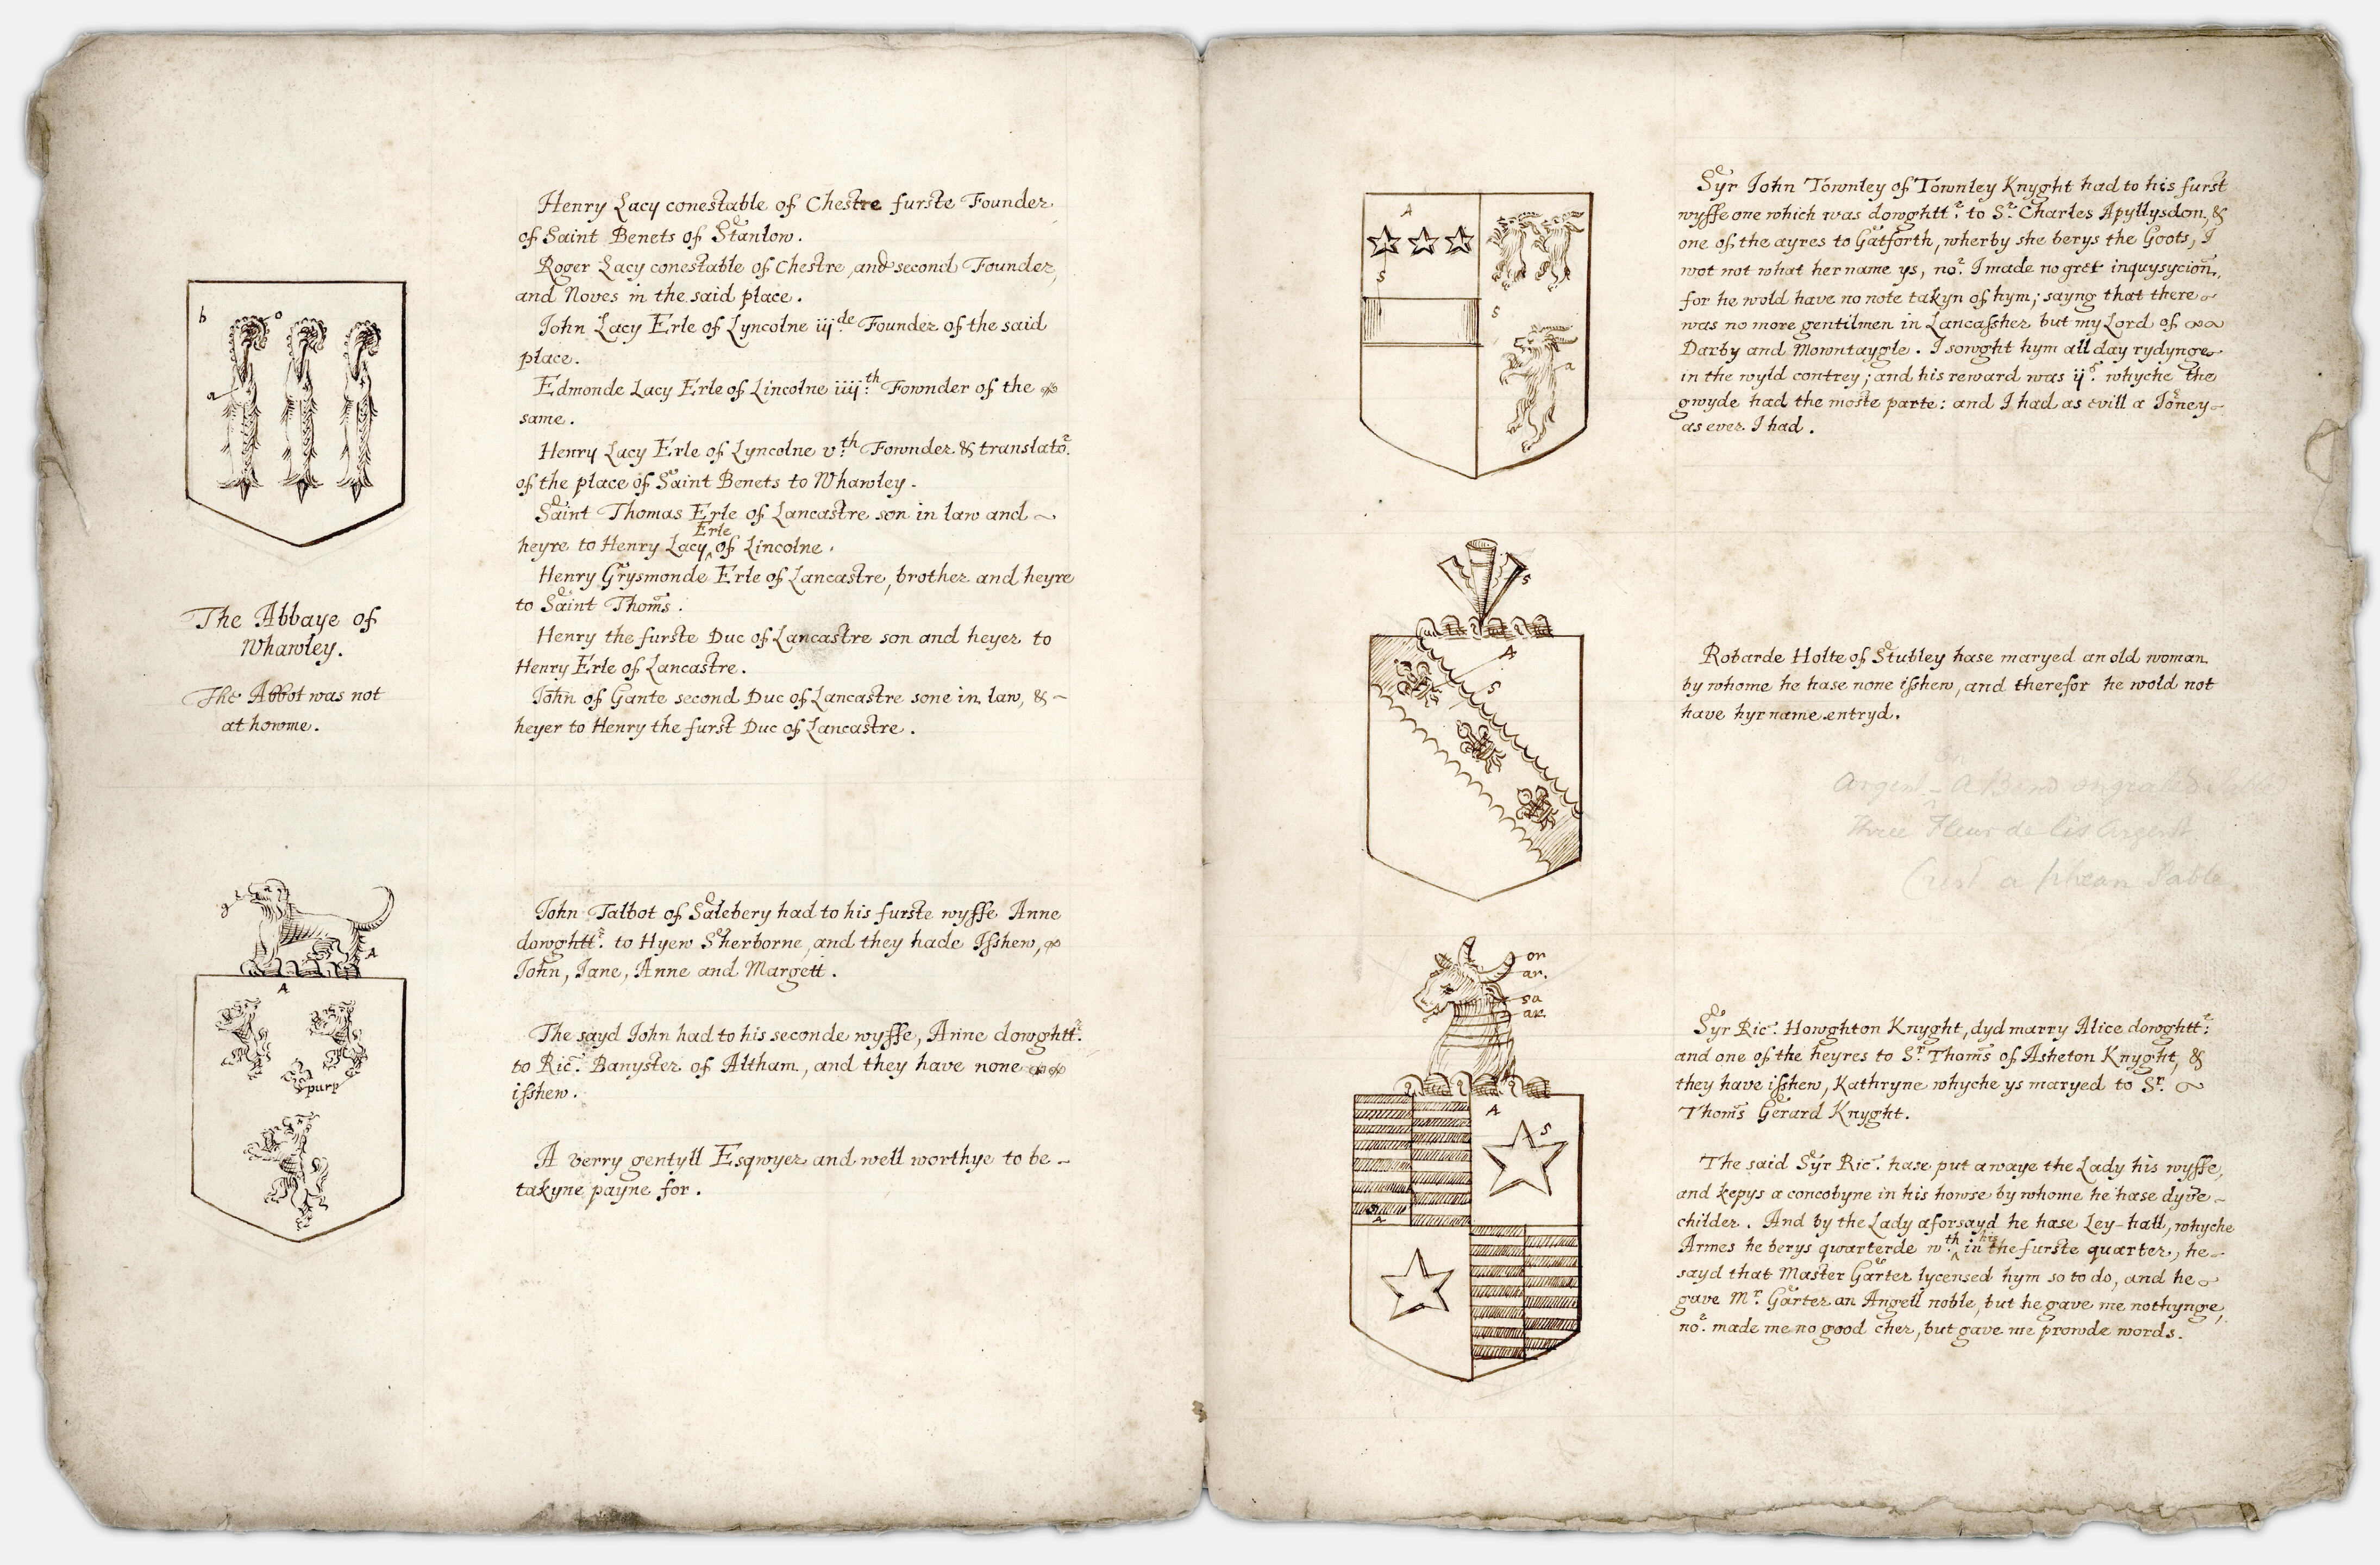 b
o
a
The Abbaye of
Whawley.
The Abbot was not
at howme.
Henry Lacy conestable of Chestre furste Founder
of Saint Benets of Stanlow.
Roger Lacy conestable of Chestre, and second Founder,
and Noves in the said place.
John Lacy Erle of Lyncolne iij.de Founder of the said
place.
Edmonde Lacy Erle of Lincolne iiij.th Fownder of the
same.
Henry Lacy Erle of Lyncolne v.th Fownder & translator.
of the place of Saint Benets to Whawley.
Saint Thomas Erle of Lancastre son in law and
Erle
heyre to Henry Lacy ‸ of Lincolne.
Henry Grysmonde Erle of Lancastre, brother and heyre
to Saint Thom̄s.
Henry the furste Duc of Lancastre son and heyer to
Henry Erle of Lancastre.
John of Gante second Duc of Lancastre sone in law, &
heyer to Henry the furst Duc of Lancastre.
g
A
A
purp
John Talbot of Salebery had to his furste wyffe Anne
dowghttr. to Hyew Sherborne, and they hade Isshew,
John, Jane, Anne and Margett.
The sayd John had to his seconde wyffe, Anne dowghttr.
to Ric. Banyster of Altham, and they have none
isshew.
A verry gentyll Esqwyer and well worthye to be
takyne payne for.
A
S
S
a
Syr John Townley of Townley Knyght had to his furst
wyffe one which was dowghttr. to Sr. Charles Apyllysdon, &
one of the ayres to Gatforth, wherby she berys the Goots, I
wot not what her name ys, nor. I made no gret inquysycion,
for he wold have no note takyn of hym; sayng that there
was no more gentilmen in Lancassher but my Lord of
Darby and Mowntaygle. I sowght hym all day rydynge
in the wyld contrey; and his reward was ijs. whyche the
gwyde had the moste parte: and I had as evill a Joney
as ever I had.
S
A
S
Robarde Holte of Stubley hase maryed an old woman
by whome he hase none isshew, and therefor he wold not
have hyr name entryd.
Argent a Bend engrailed
three Fleur de lis Argent
Crest a phean Sable
or
ar.
sa
ar.
A
S
A
Syr Ric. Howghton Knyght, dyd marry Alice dowghttr:
and one of the heyres to Sr. Thom̄s of Asheton Knyght, &
they have isshew, Kathryne whyche ys maryed to Sr.
Thom̄s Gerard Knyght.
The said Syr Ric. hase put awaye the Lady his wyffe,
and kepys a concobyne in his howse by whome he hase dyve
childer. And by the Lady aforsayd he hase Ley-hall, whyche
his
Armes he berys qwarterde w.th ‸ in the furste quarter, he
sayd that Master Garter lycensed hym so to do, and he
gave Mr. Garter an Angell noble, but he gave me nothynge,
nor. made me no good cher, but gave me prowde words.